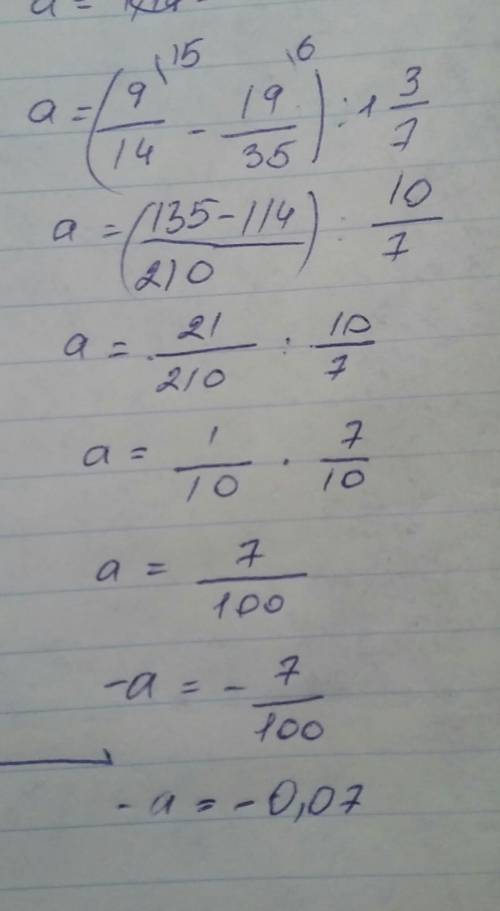 a = (9/14 \15 - 19/35 \6) : 1 3/7
a = (135-114/210) : 10/7
a = 21/210 : 10/7
a = 1/10 · 7/10
a = 7/100
-a = - 7/100
-a = -0,07